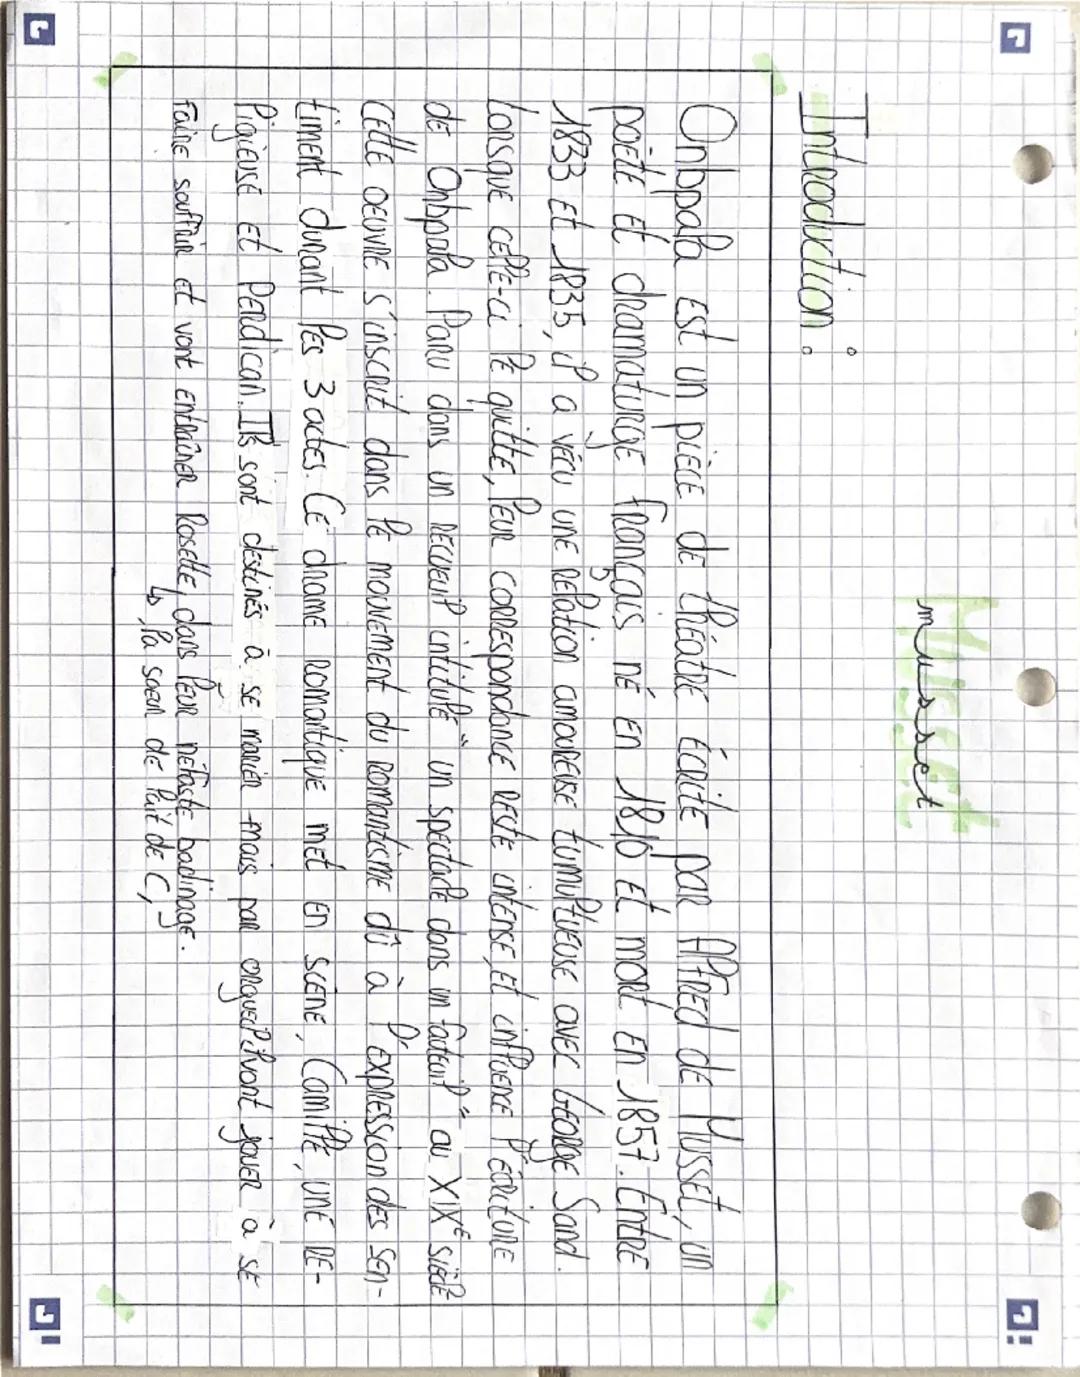 Musset
musset
Introduction :
Onbpala est un pièce de théâtre écrite par Alfred de Musset, un
poète et dramaturge français né en 1810 et mort en 1857. Entre
1833 et 1835, il a vécu une relation amoureuse tumultueuse avec George Sand.
Lorsque celle-ci le quitte, leur correspondance reste intense, et influence l'écriture
de Onbpala. Paru dans un recueuil intitulé " un spectacle dans un fauteuil " au XIXe siècle
Cette oeuvre s'inscrit dans le mouvement du romantisme dû à l'expression des sen-
timent durant les 3 actes. Ce drame romantique met en scène, Camille, une re-
ligieuse et Perdican. Ils sont destinés à se marier mais par orgueil vont jouer à se
faire souffrir et vont entraîner Rosette, dans leur néfaste badinage.
↳ la soeur de lait de C,